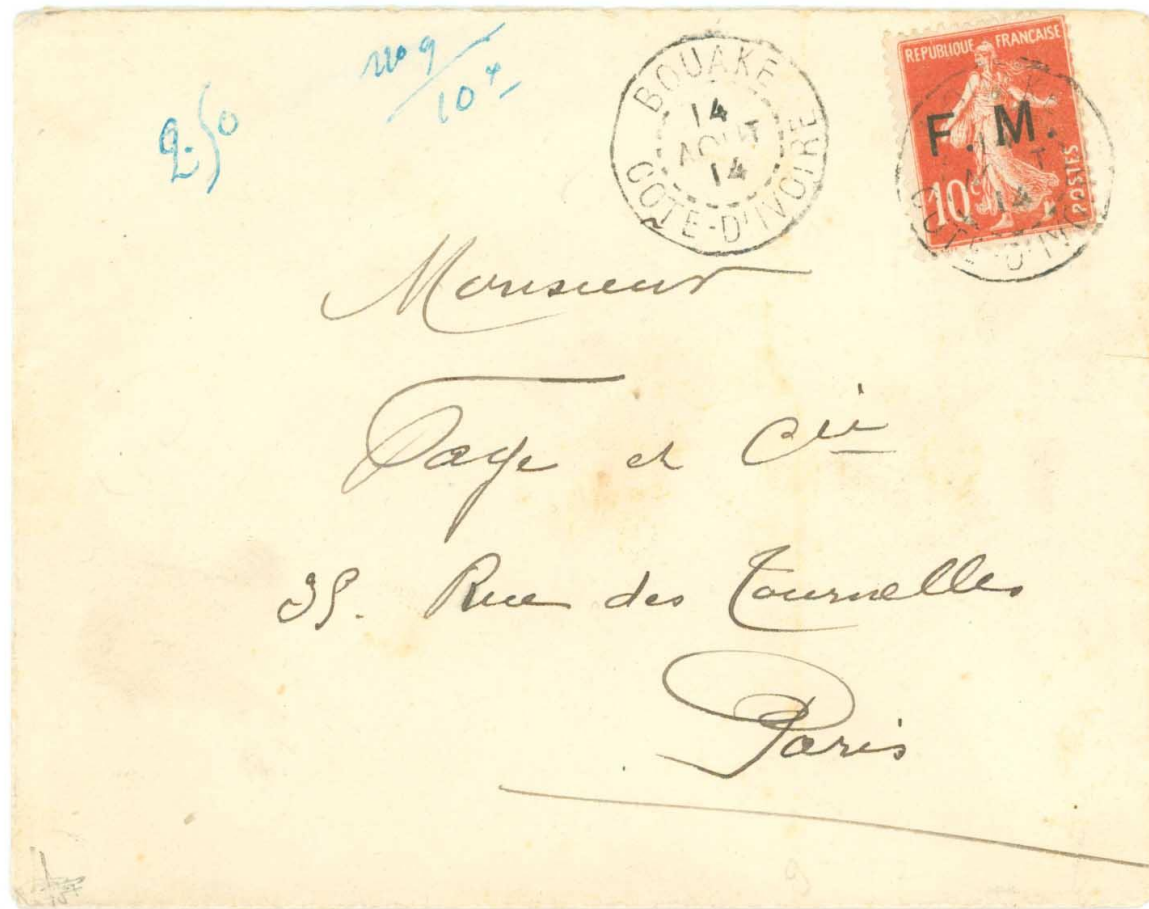 2.50
BOUAKE
14
AOUT
14
COTE-D'IVOIRE
REPUBLIQUE FRANÇAISE
F.M.
10c
POSTES
14
Monsieur
Faye et Cie
35. Rue des Tournelles
Paris